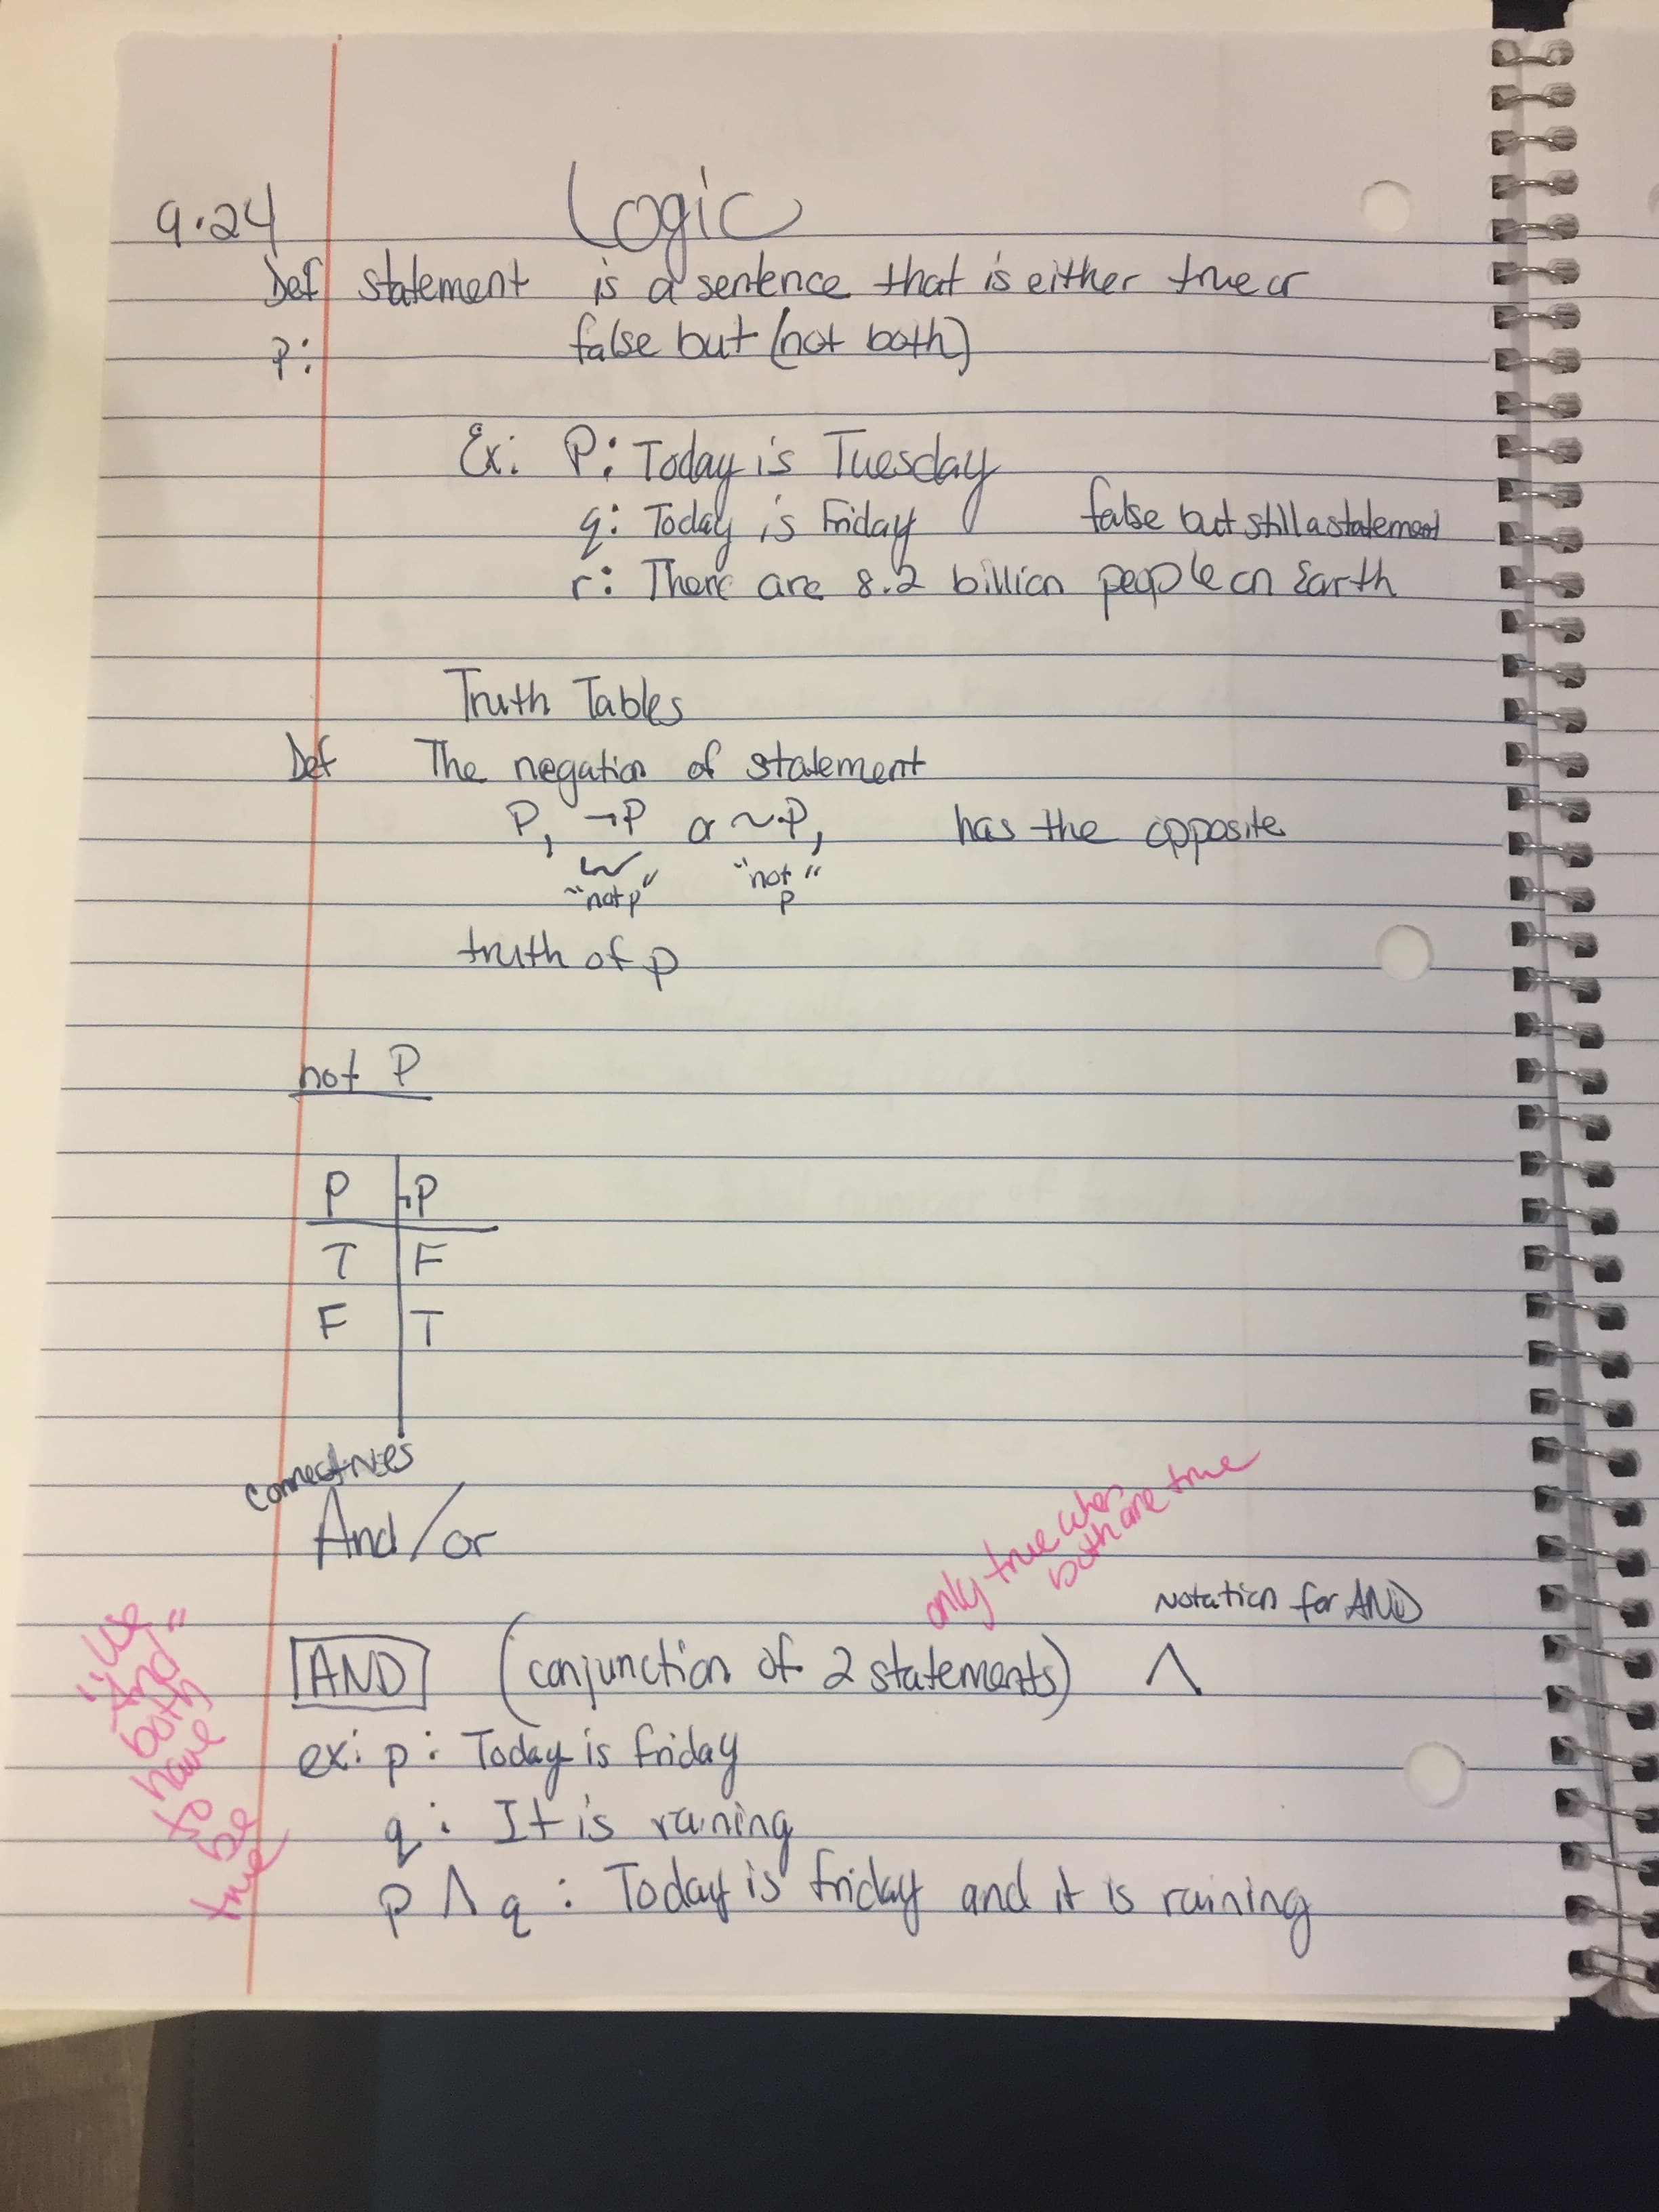 9.24 Logic
Def statement is a sentence that is either true or
P: false but (not both)
Ex: P: Today is Tuesday
q: Today is Friday false but still a statement
r: There are 8.2 billion people on Earth
Truth Tables
Def The negation of statement
P, ¬P or ~P, has the opposite
"not p" "not p"
truth of p
not P
P ¬P
T F
F T
Connectives
And/or
only true when
both are true
Notation for AND
AND (conjunction of 2 statements) ∧
ex: p: Today is Friday
q: It is raining
p ∧ q: Today is friday and it is raining
And"
both
have
to
be
true